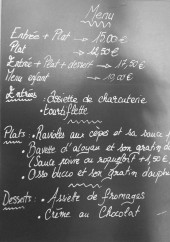 Menu
Entrée + Plat → 15,00 €
Plat → 12,50 €
Entrée + Plat + dessert → 17,50 €
Menu enfant → 10,00 €
Entrées : Assiette de charcuterie
• tourtiflette
Plats : • Ravioles aux cèpes et sa sauce
• Bavette d'aloyau et son gratin
(Sauce poivre ou roquefort +1,50 €
• Osso bucco et son gratin dauph
Desserts : • Assiete de fromages
• Crème au Chocolat